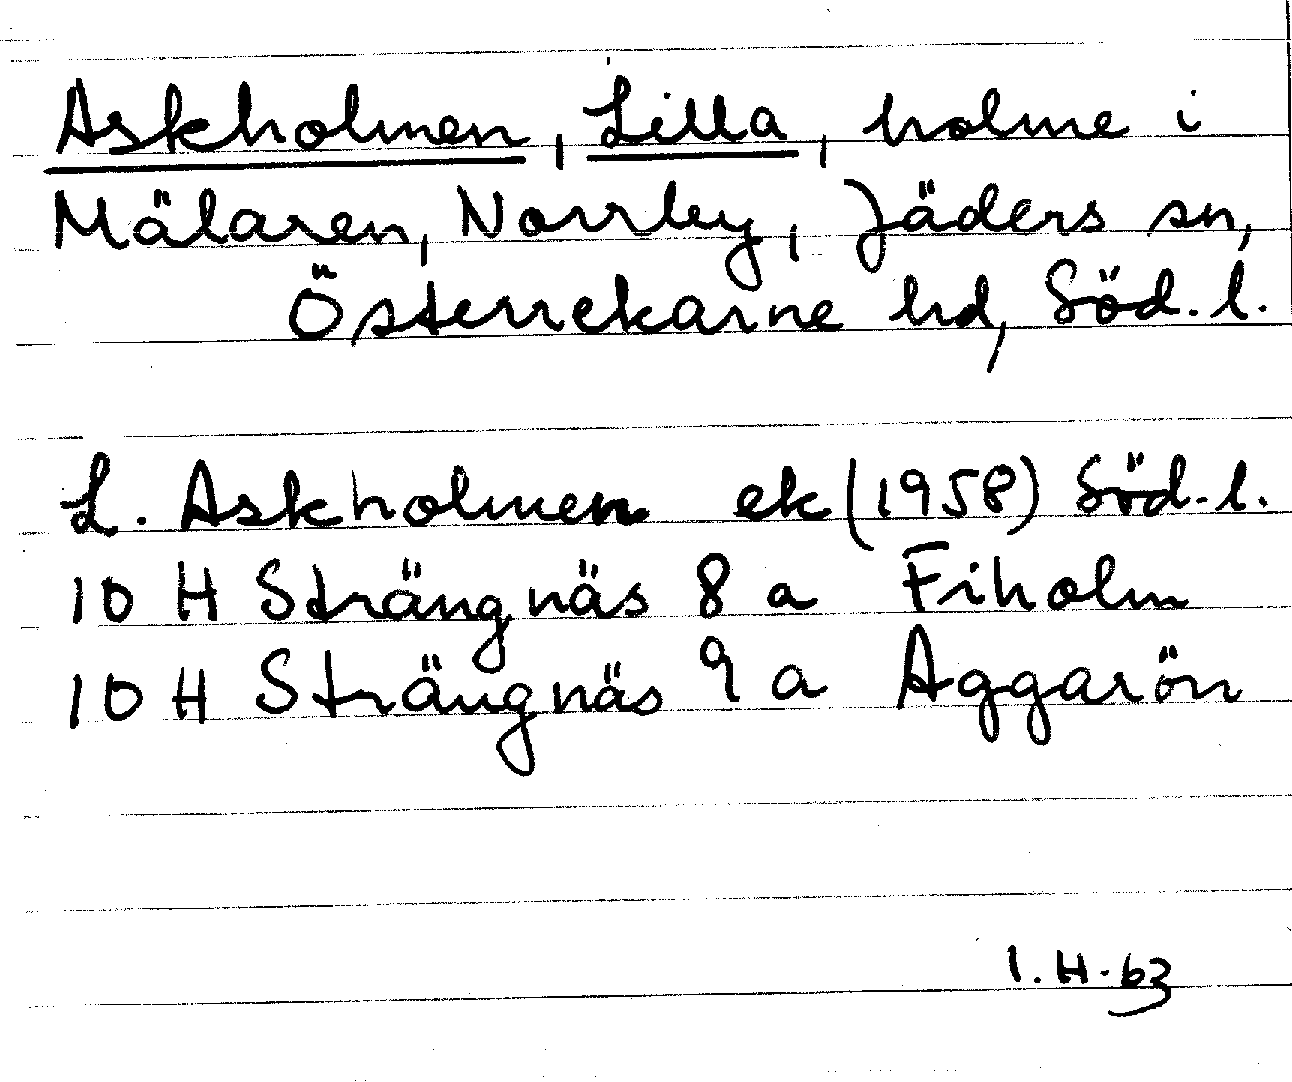 Askholmen, Lilla, holme i
Mälaren, Norrby, Jäders sn,
Österrekarne hd, Söd. l.
L. Askholmen ek (1958) Söd. l.
10 H Strängnäs 8 a Fiholm
10 H Strängnäs 9 a Aggarön
I. H. 63